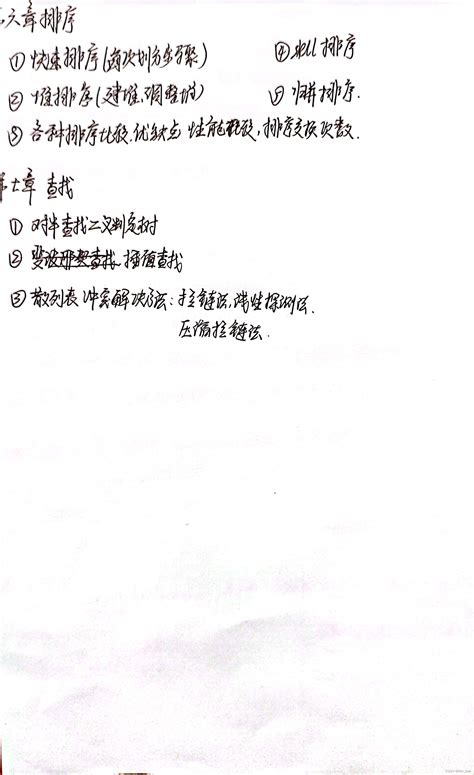 第六章 排序
① 快速排序(每次划分步骤) ④ shell 排序
② 堆排序(建堆、调整堆) ⑤ 归并排序.
③ 各种排序比较.优缺点 性能比较,排序交换次数.
第七章 查找
① 对半查找二叉判定树
② 斐波那契查找、插值查找
③ 散列表 冲突解决方法: 拉链法,线性探测法.
压缩拉链法